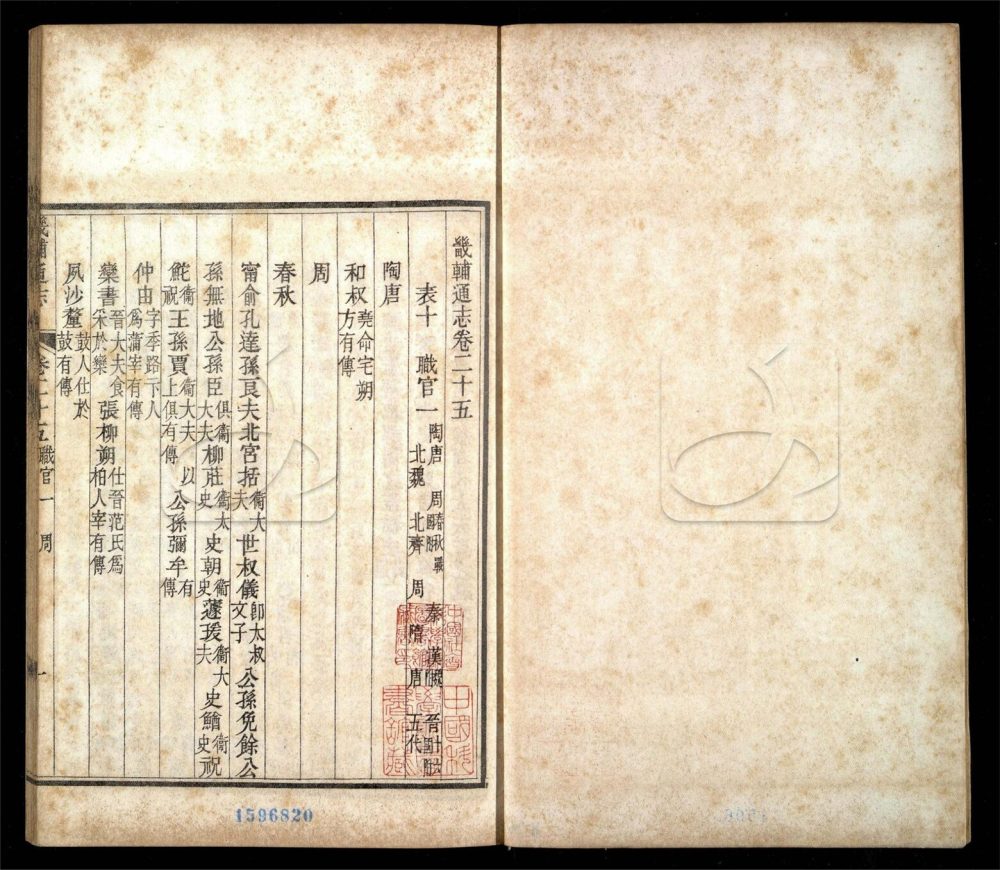 畿輔通志卷二十五
表十 職官一 陶唐 周 春秋 戰國 秦 漢 晉 北魏 北齊 周 隋 唐 五代
陶唐
和叔 堯命宅朔方有傳
周
春秋
甯俞孔達孫良夫北宮括 衞大夫 世叔儀 卽太叔文子 公孫免餘公
孫無地公孫臣 俱衞大夫 柳莊 衞太史 史朝 衞史 蘧瑗 衞大夫 史鰌 衞史 祝
鮀 衞祝 王孫賈 衞大夫以上俱有傳 公孫彌牟 有傳
仲由 字季路卞人爲蒲宰有傳
欒書 晉大夫食采於欒 張柳朔 仕晉范氏爲柏人宰有傳
夙沙釐 鼓人仕於鼓有傳
畿輔通志 卷二十五 職官一 周 一
1596820